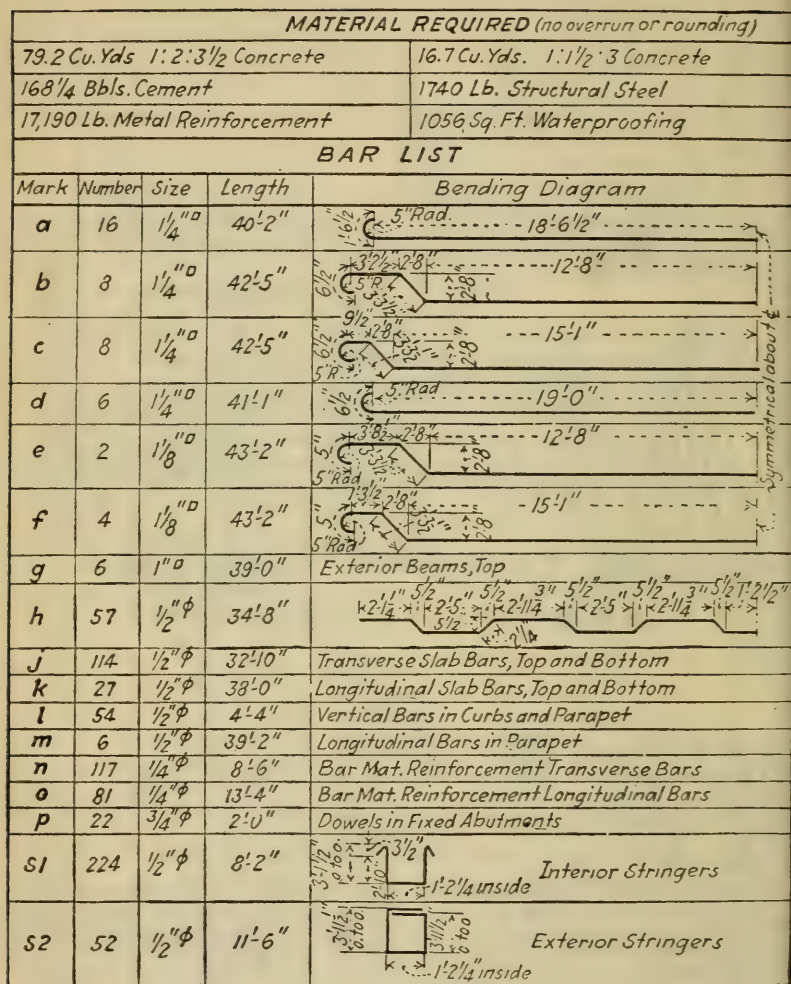 MATERIAL REQUIRED (no overrun or rounding)
79.2 Cu. Yds 1:2:3½ Concrete 16.7 Cu. Yds. 1:1½:3 Concrete
168¼ Bbls. Cement 1740 Lb. Structural Steel
17,190 Lb. Metal Reinforcement 1056 Sq. Ft. Waterproofing
BAR LIST
Mark Number Size Length Bending Diagram
a 16 1¼"□ 40'-2" 1'-6½" 5"Rad. 18'-6½"
b 8 1¼"□ 42'-5" 6½" 3'-2½" 2'-8" 5"R. 12'-8" 2'-8"
c 8 1¼"□ 42'-5" 9½" 6½" 2'-8" 5"R. 15'-1" 2'-8"
d 6 1¼"□ 41'-1" 6½" 5"Rad 19'-0"
e 2 1⅛"□ 43'-2" 5" 3'-8½" 2'-8" 5"Rad 12'-8" 2'-8"
f 4 1⅛"□ 43'-2" 5" 1'-3½" 2'-8" 5"Rad 15'-1" 2'-8"
Symmetrical about ℄
g 6 1"□ 39'-0" Exterior Beams, Top
h 57 ½"ϕ 34'-8" 2'-1¼" 5½" 2'-5" 5½" 2'-11¾" 5½" 2'-5" 5½" 2'-11¾" 5½" 1'-2½" 5½ 2¼"
j 114 ½"ϕ 32'-10" Transverse Slab Bars, Top and Bottom
k 27 ½"ϕ 38'-0" Longitudinal Slab Bars, Top and Bottom
l 54 ½"ϕ 4'-4" Vertical Bars in Curbs and Parapet
m 6 ½"ϕ 39'-2" Longitudinal Bars in Parapet
n 117 ¼"ϕ 8'-6" Bar Mat. Reinforcement Transverse Bars
o 81 ¼"ϕ 13'-4" Bar Mat. Reinforcement Longitudinal Bars
p 22 ¾"ϕ 2'-0" Dowels in Fixed Abutments
S1 224 ½"ϕ 8'-2" 3'-1½" o.to o. 2'-10" 3½" 1'-2¼ inside Interior Stringers
S2 52 ½"ϕ 11'-6" 3'-11½" o.to o. 3'-11½" o.to o. 1'-2¼" inside Exterior Stringers